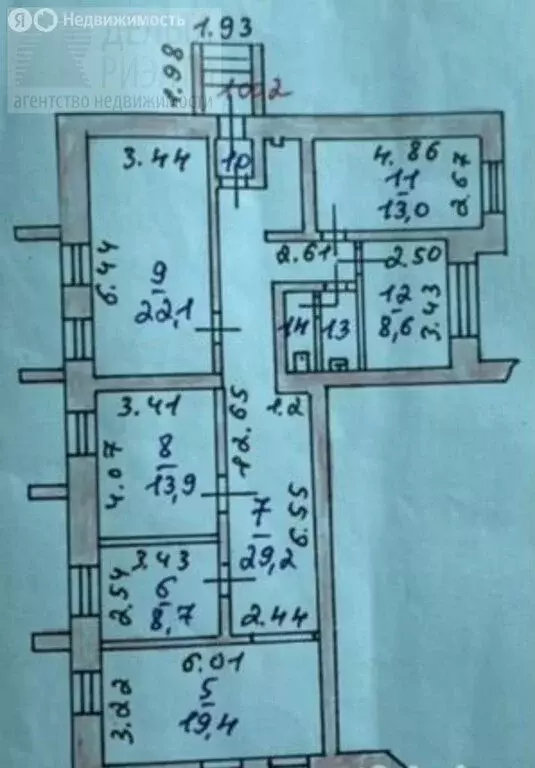 Я Недвижимость
ДЕЛЬТА
РИЭЛТ
агентство недвижимости
1.93
1.98
10
3.44
6.44
9
22,1
4.86
11
13,0
2.67
2.61
2.50
12
8,6
3.43
14
13
1.2
3.41
4.07
8
13,9
12.65
7
29,2
6.55
2.44
3.43
2.54
6
8,7
6.01
5
19,4
3.22